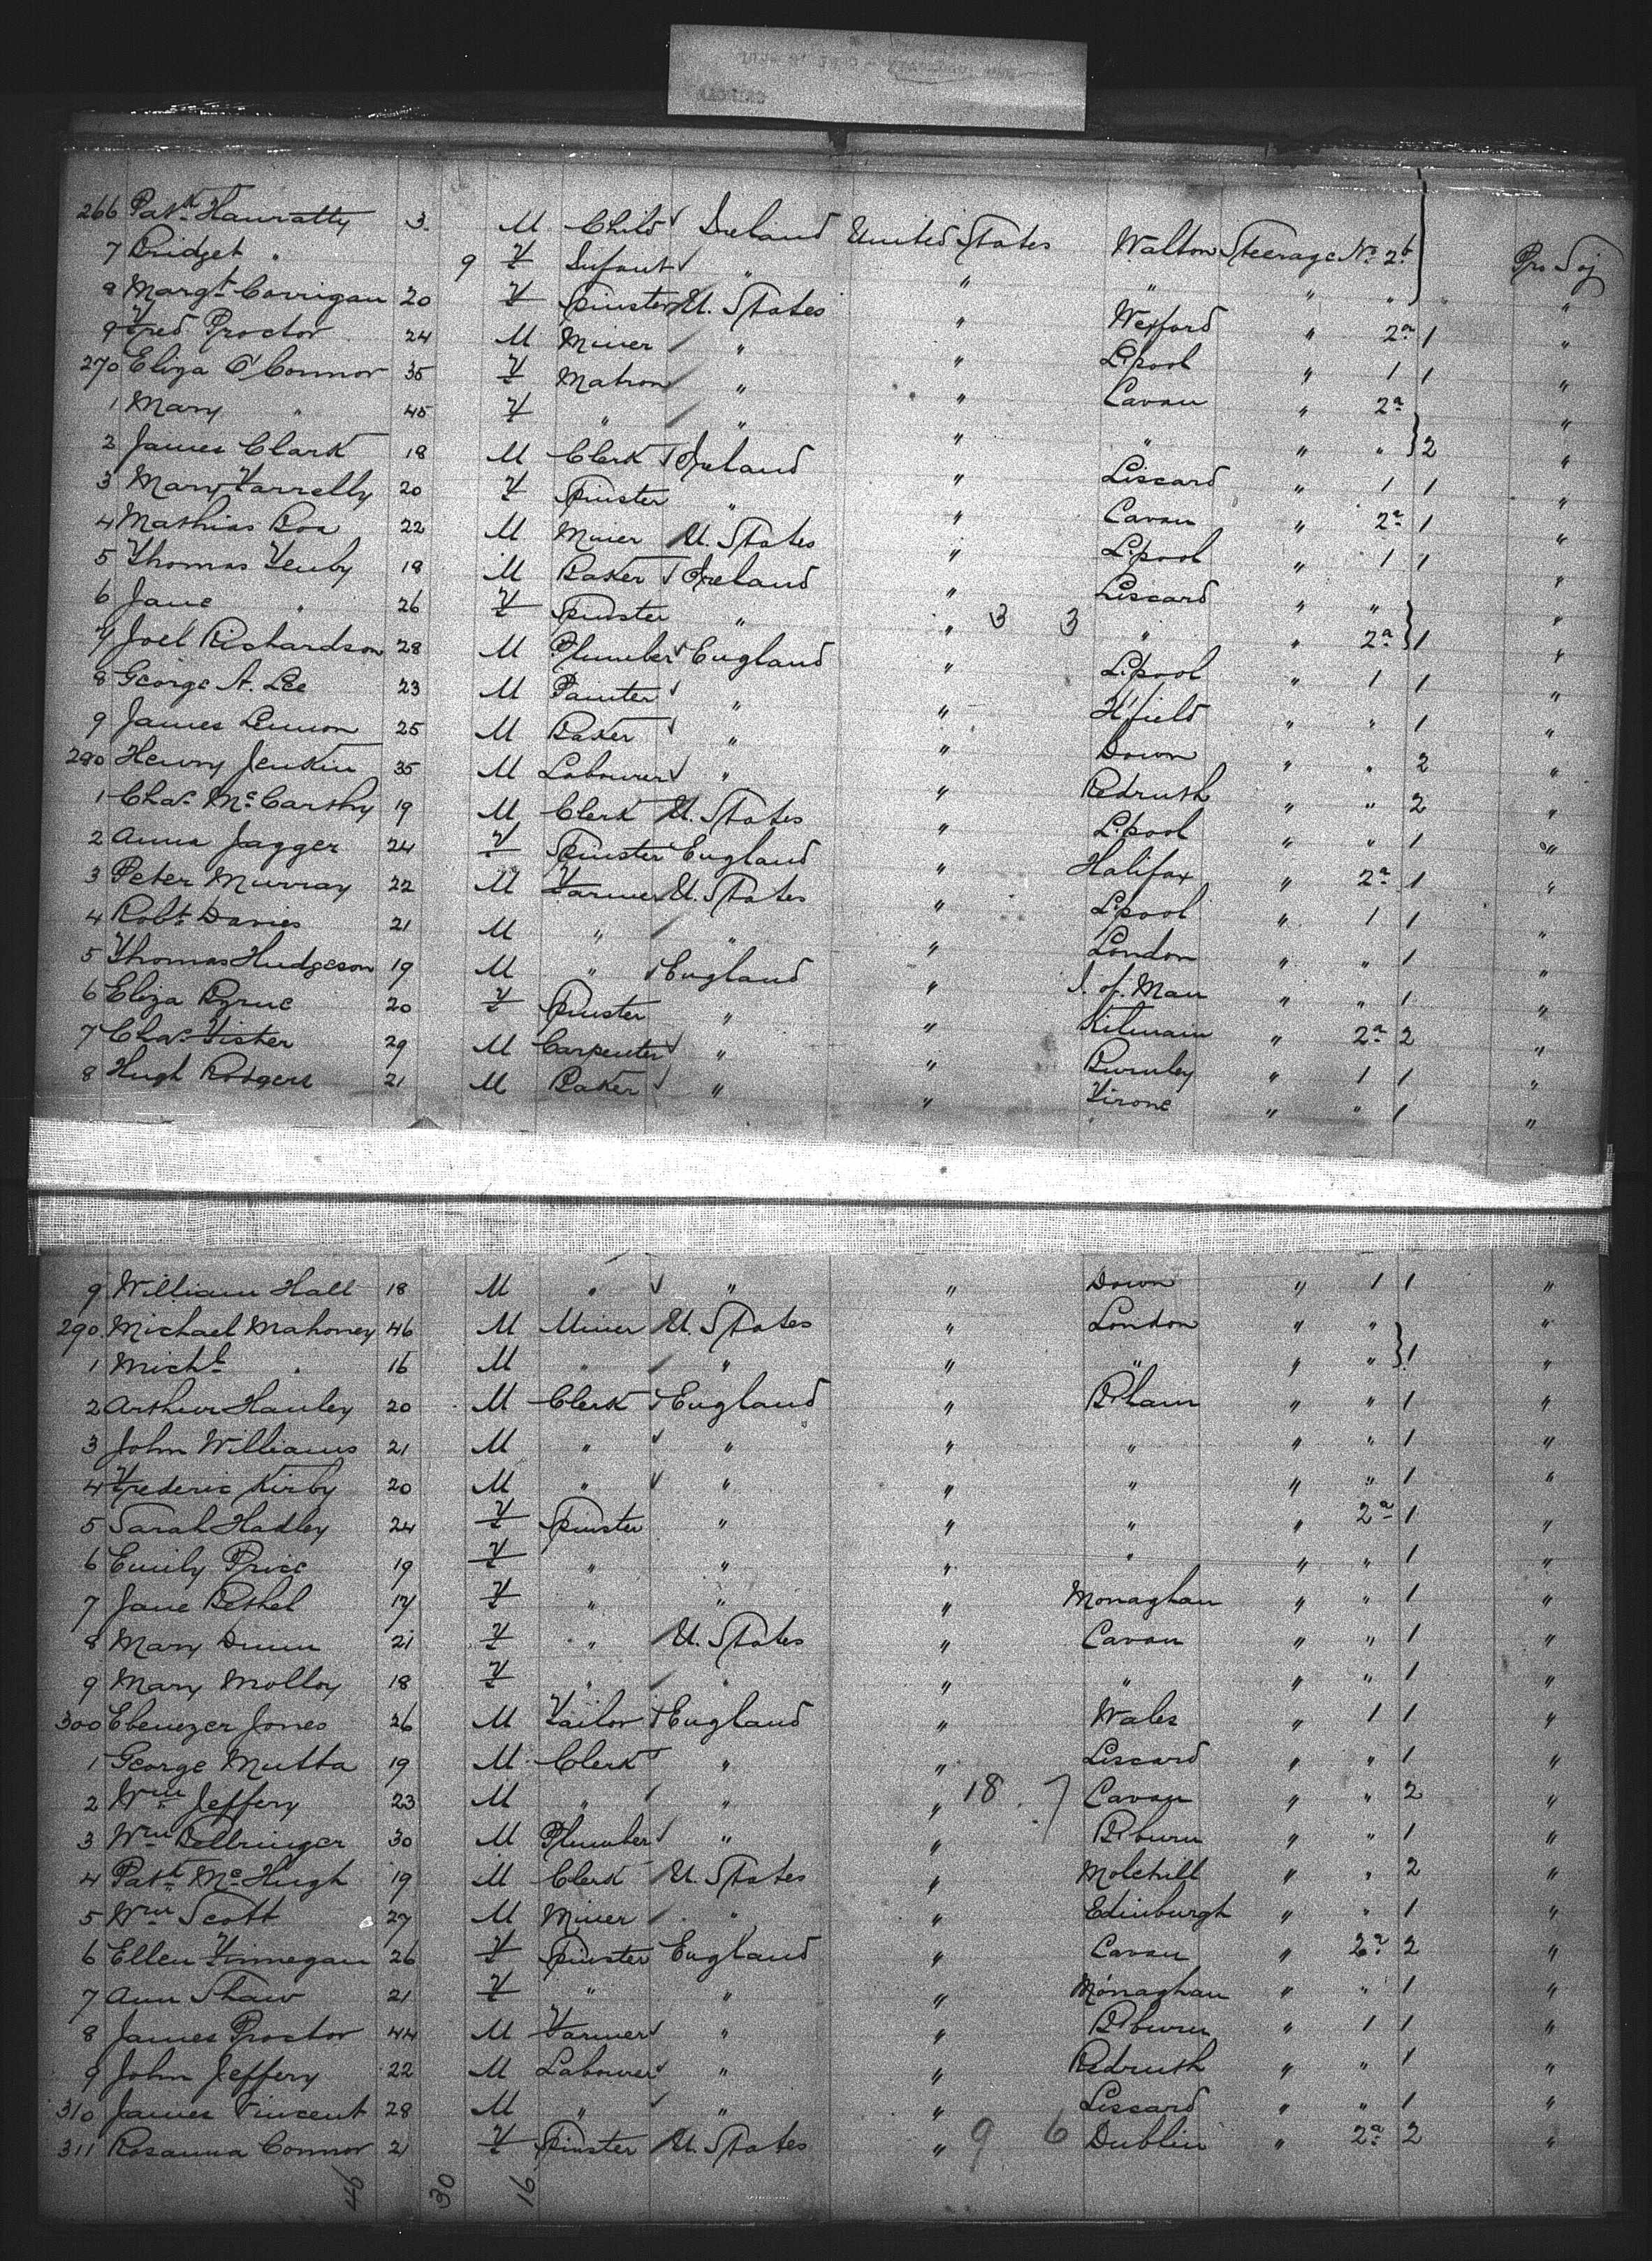 266 Patk Hanratty 3 M Child Ireland United States Walton Steerage No 2b Pro Soj
7 Bridget " 9 F Infant " " " " " "
8 Margt Corrigan 20 F Spinster U. States " Wexford " 2a 1 "
9 Fred Proctor 24 M Miner " " L.pool " 1 1 "
270 Eliza O'Connor 35 F Matron " " Cavan " 2a "
1 Mary " 45 F " " " " " " 2 "
2 James Clark 18 M Clerk Ireland " Liscard " 1 1 "
3 Mary Farrelly 20 F Spinster " " Cavan " 2a 1 "
4 Mathias Boa 22 M Miner U. States " L.pool " 1 1 "
5 Thomas 18 M Baker Ireland " Liscard " " "
6 Jane " 26 F Spinster " " 3 3 " " 2a 1 "
7 Joel Richardson 28 M Plumber England " L.pool " 1 1 "
8 George A. Lee 23 M Painter " " H'field " " 1 "
9 James Lennon 25 M Baker " " Down " " 2 "
280 Henry Jenkin 35 M Labourer " " Redruth " " 2 "
1 Chas McCarthy 19 M Clerk U. States " L.pool " " 1 "
2 Anna Jagger 24 F Spinster England " Halifax " 2a 1 "
3 Peter Murray 22 M Farmer U. States " L.pool " 1 1 "
4 Robt Davies 21 M " " " London " " 1 "
5 Thomas Hudgeson 19 M " England " I. of. Man " " 1 "
6 Eliza Byrne 20 F Spinster " " Kilmain " 2a 2 "
7 Chas Fisher 29 M Carpenter " " Burnley " 1 1 "
8 Hugh Rodgers 21 M Baker " " Tirone " " 1 "
9 William Hall 18 M " " " Down " 1 1 "
290 Michael Mahoney 46 M Miner U. States " London " " "
1 Michl " 16 M " " " " " " 1 "
2 Arthur Hanley 20 M Clerk England " B'ham " " 1 "
3 John Williams 21 M " " " " " " 1 "
4 Frederic Kirby 20 M " " " " " " 1 "
5 Sarah Hadley 24 F Spinster " " " " 2a 1 "
6 Emily Price 19 F " " " " " " 1 "
7 Jane Bethel 17 F " " " Monaghan " " 1 "
8 Mary Dunn 21 F " U. States " Cavan " " 1 "
9 Mary Molloy 18 F " " " " " " 1 "
300 Ebenezer Jones 26 M Tailor England " Wales " 1 1 "
1 George Mutta 19 M Clerk " " Liscard " " 1 "
2 Wm Jeffery 23 M " " " 18 7 Cavan " " 2 "
3 Wm Bellringer 30 M Plumber " " B'burn " " 1 "
4 Patk McHugh 19 M Clerk U. States " Molehill " " 2 "
5 Wm Scott 27 M Miner " " Edinburgh " " 1 "
6 Ellen Finnegan 26 F Spinster England " Cavan " 2a 2 "
7 Ann Shaw 21 F " " " Monaghan " " 1 "
8 James Proctor 44 M Farmer " " B'burn " 1 1 "
9 John Jeffery 22 M Labourer " " Redruth " " 1 "
310 James Vincent 28 M " " " Liscard " " 1 "
311 Rosanna Connor 21 F Spinster U. States " 9 6 Dublin " 2a 2 "
46 30 16